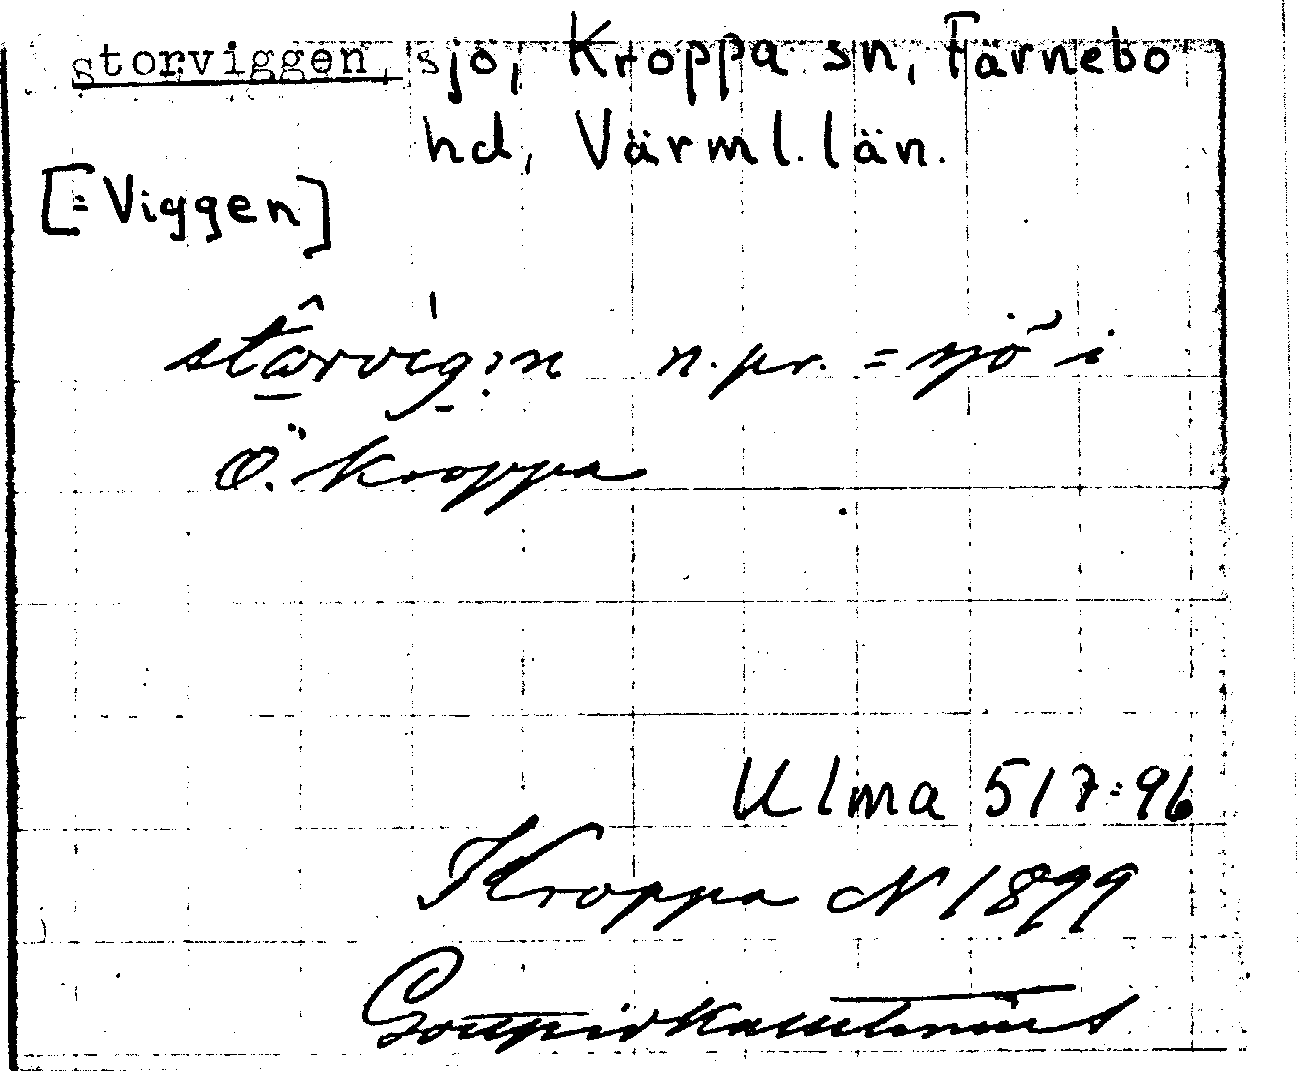 storviggen, sjö, Kroppa sn, Färnebo
hd, Värml. län.
[= Viggen]
n.pr. = sjö i
Ö. Kroppa
Ulma 517:96
Kroppa N 1899